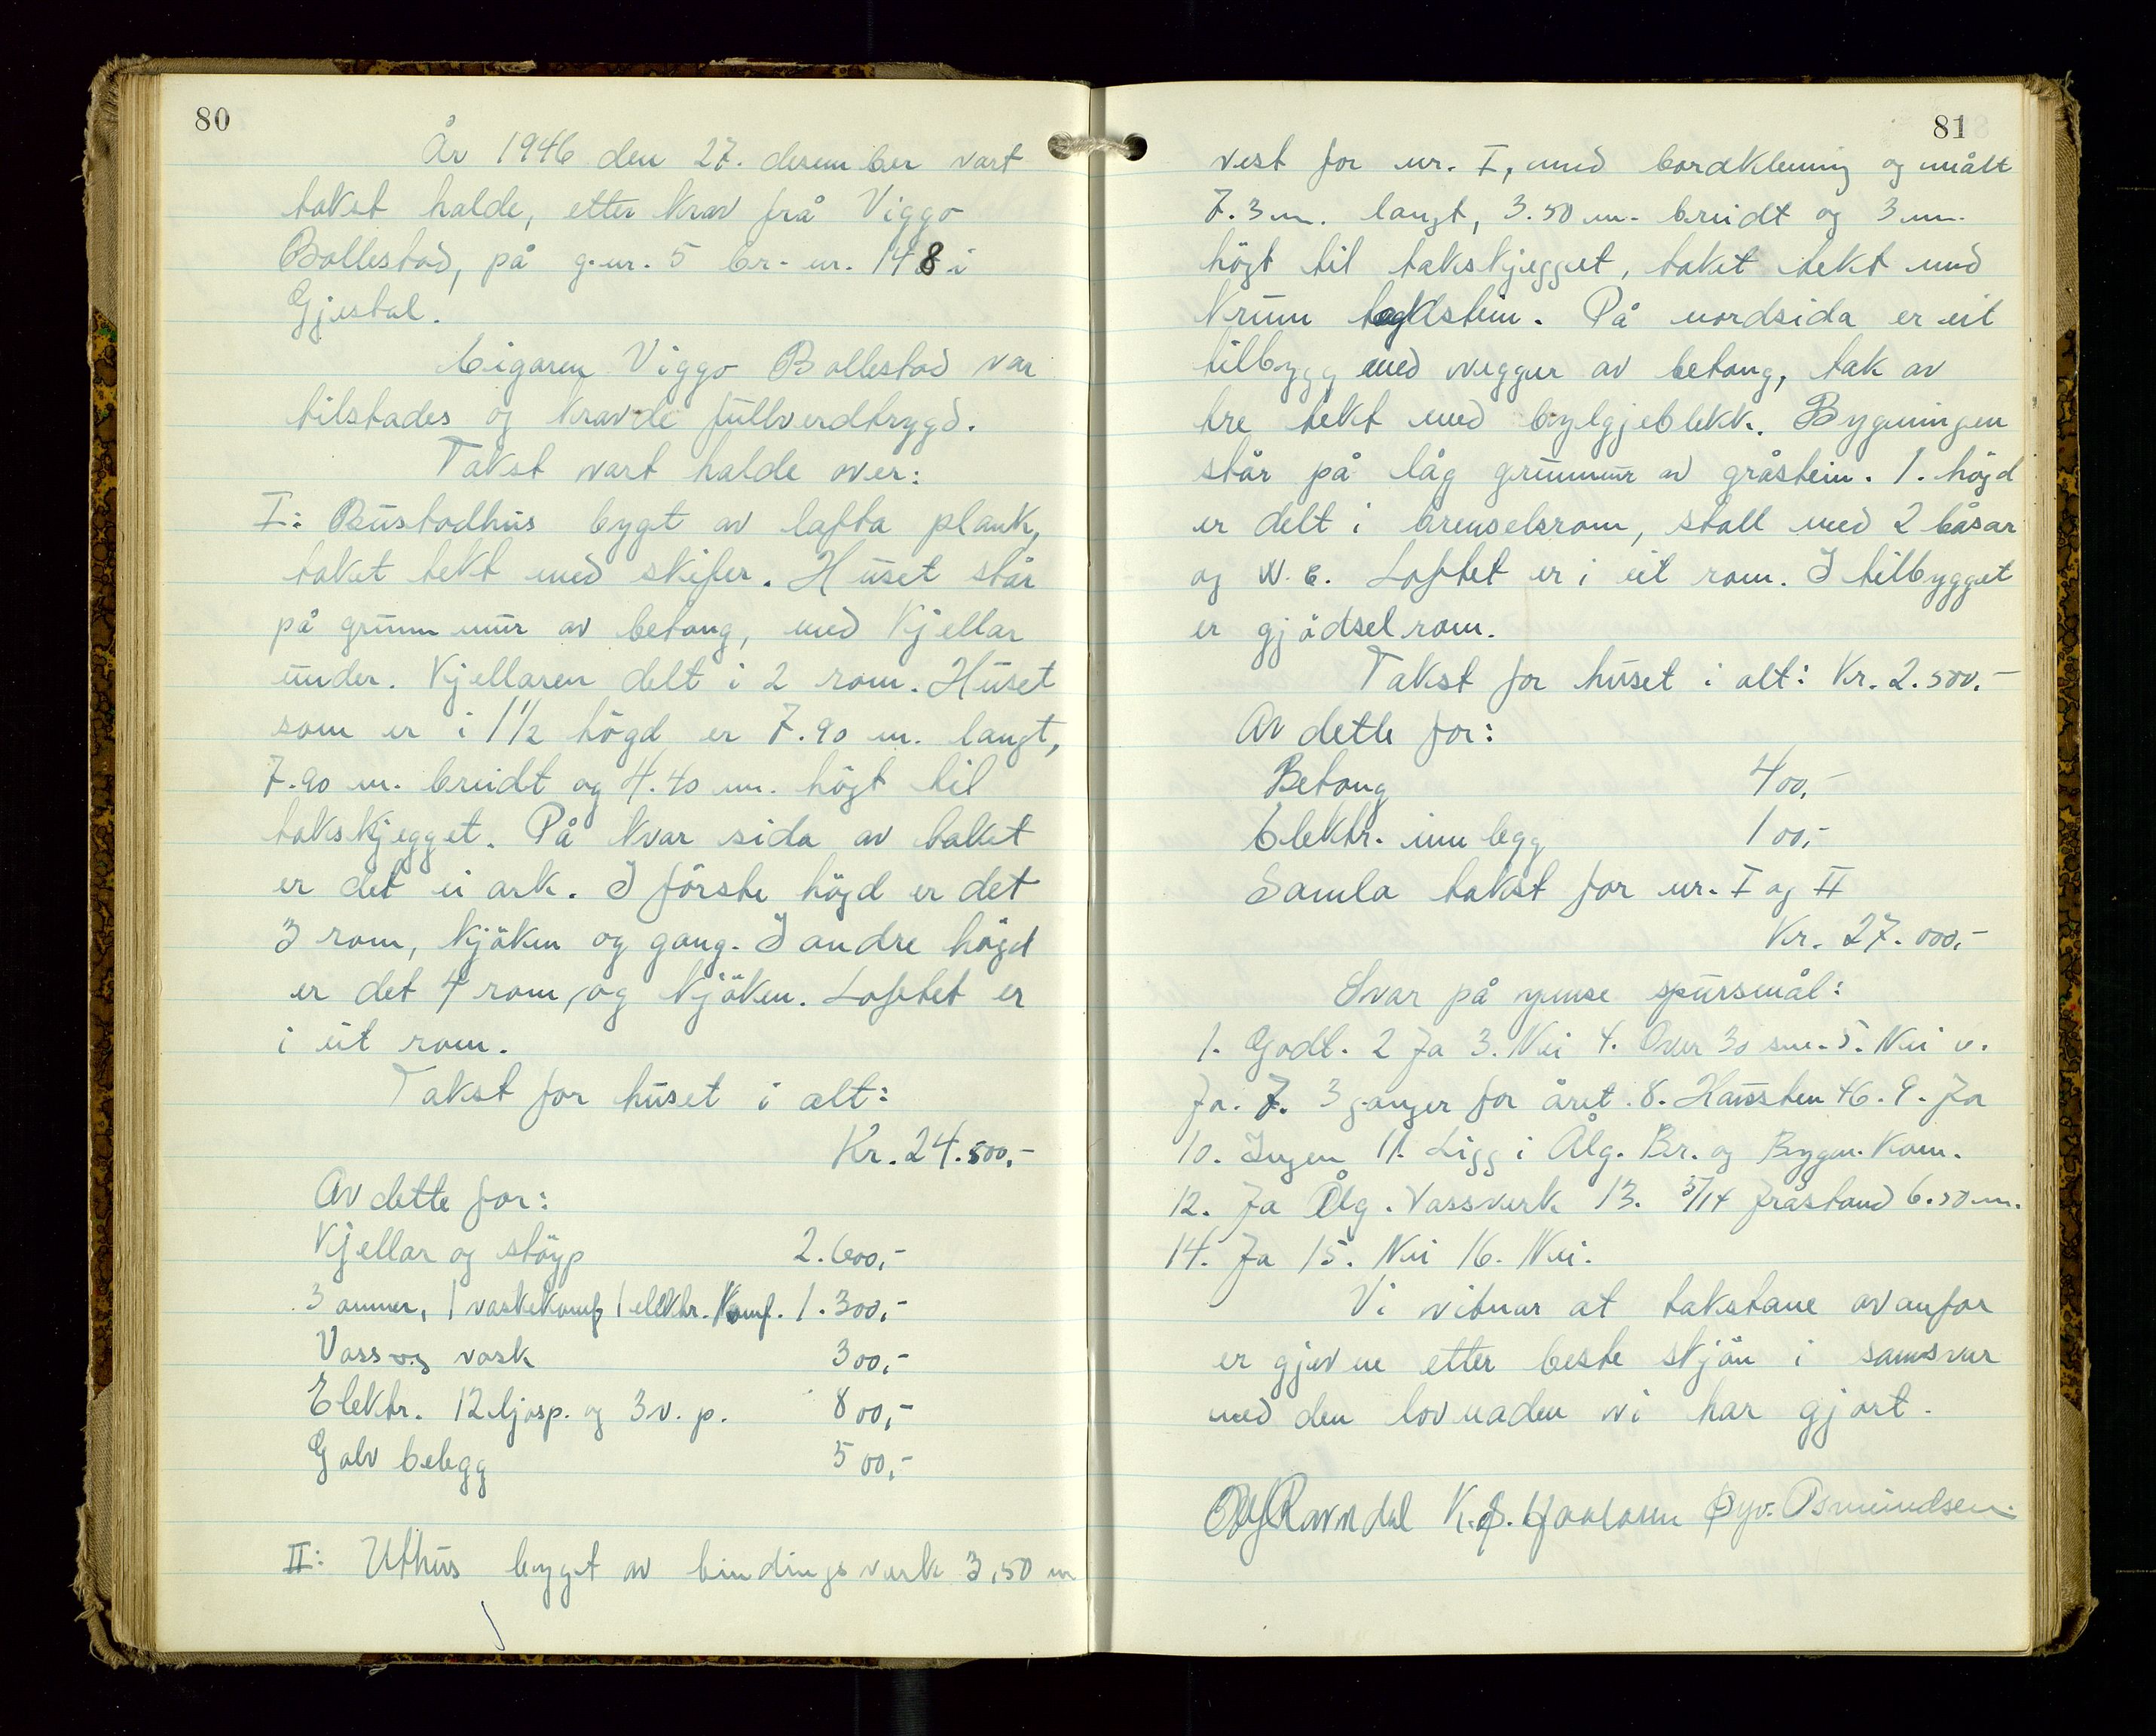 80
År 1946 den 27. desember vart
takst halde, etter krav frå Viggo
Bollestad, på g.nr. 5 br.nr. 148 i
Gjestal.
Eigaren Viggo Bollestad var
tilstades og kravde fullverdtrygd.
Takst vart halde over:
I: Bustadhus bygt av lafta plank,
taket tekt med skifer. Huset står
på grunnmur av betong, med kjellar
under. Kjellaren delt i 2 rom. Huset
som er i 1 1/2 högd er 7.90 m. langt,
7.90 m. breidt og 4.40 m. högt til
takskjegget. På kvar sida av taket
er det ei ark. I förste högd er det
3 rom, kjöken og gang. I andre högd
er det 4 rom, og kjöken. Loftet er
i eit rom.
Takst for huset i alt:
Kr. 24.500,-
Av dette for:
Kjellar og stöyp 2.600,-
3 omner, 1 vaskekomf 1 elektr. Komf. 1.300,-
Vass og vask 300,-
Elektr. 12 ljosp. og 3 v. p. 800,-
Golv belegg 500,-
II: Uthus bygt av bindingsverk 3,50 m
81
vest for nr. I, med bordkledning og målt
7.3 m. langt, 3.50 m. breidt og 3 m.
högt til takskjegget, taket tekt med
krum taglstein. På nordsida er eit
tilbygg med vegger av betong, tak av
tre tekt med bylgjeblekk. Bygningen
står på låg grunnmur av gråstein. 1. högd
er delt i brenselsrom, stall med 2 båsar
og W. C. Loftet er i eit rom. I tilbygget
er gjödselrom.
Takst for huset i alt: Kr. 2.500.-
Av dette for:
Betong 400,-
Elektr. innlegg 100,-
Samla takst for nr. I og II
Kr. 27.000,-
Svar på ymse spursmål:
1. Godt. 2 Ja 3. Nei 4. Over 30 sm. 5. Nei 6.
Ja. 7. 3 ganger for året. 8. Hausten 46. 9. Ja
10. Ingen 11. Ligg i Ålg. Br. og Bygn. Kom.
12. Ja Ålg. Vassverk 13. 5/14 fråstand 6.50 m.
14. Ja 15. Nei 16. Nei.
Vi vitnar at takstane ovanfor
er gjevne etter beste skjön i samsvar
med den lovnaden vi har gjort.
Ravndal K. Øyv. Asmundsen.